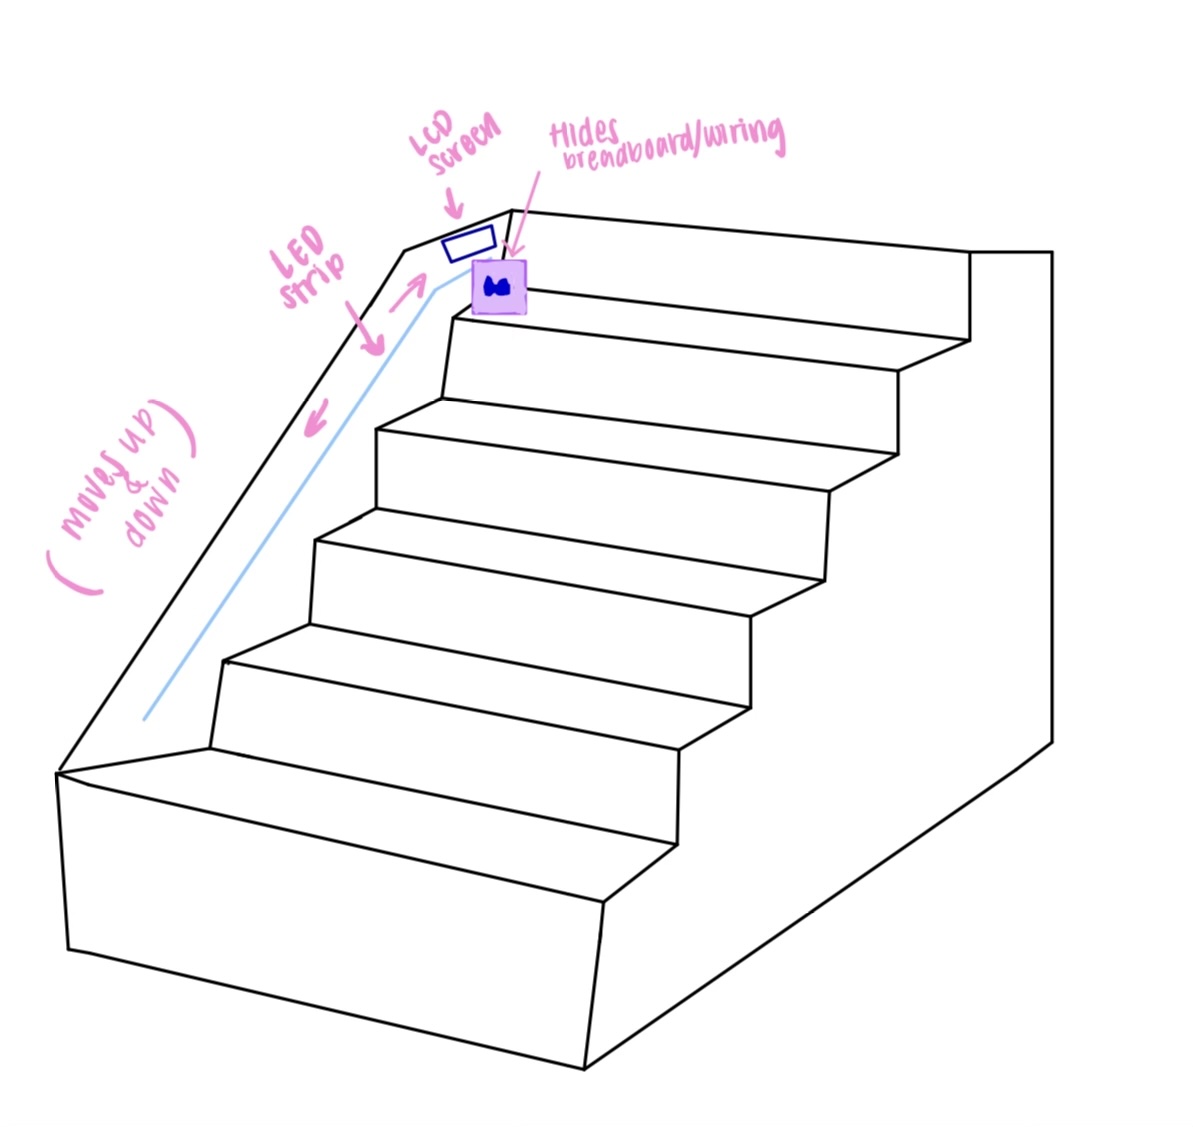 LCD
screen
Hides
breadboard/wiring
LED
strip
(moves up
&
down)